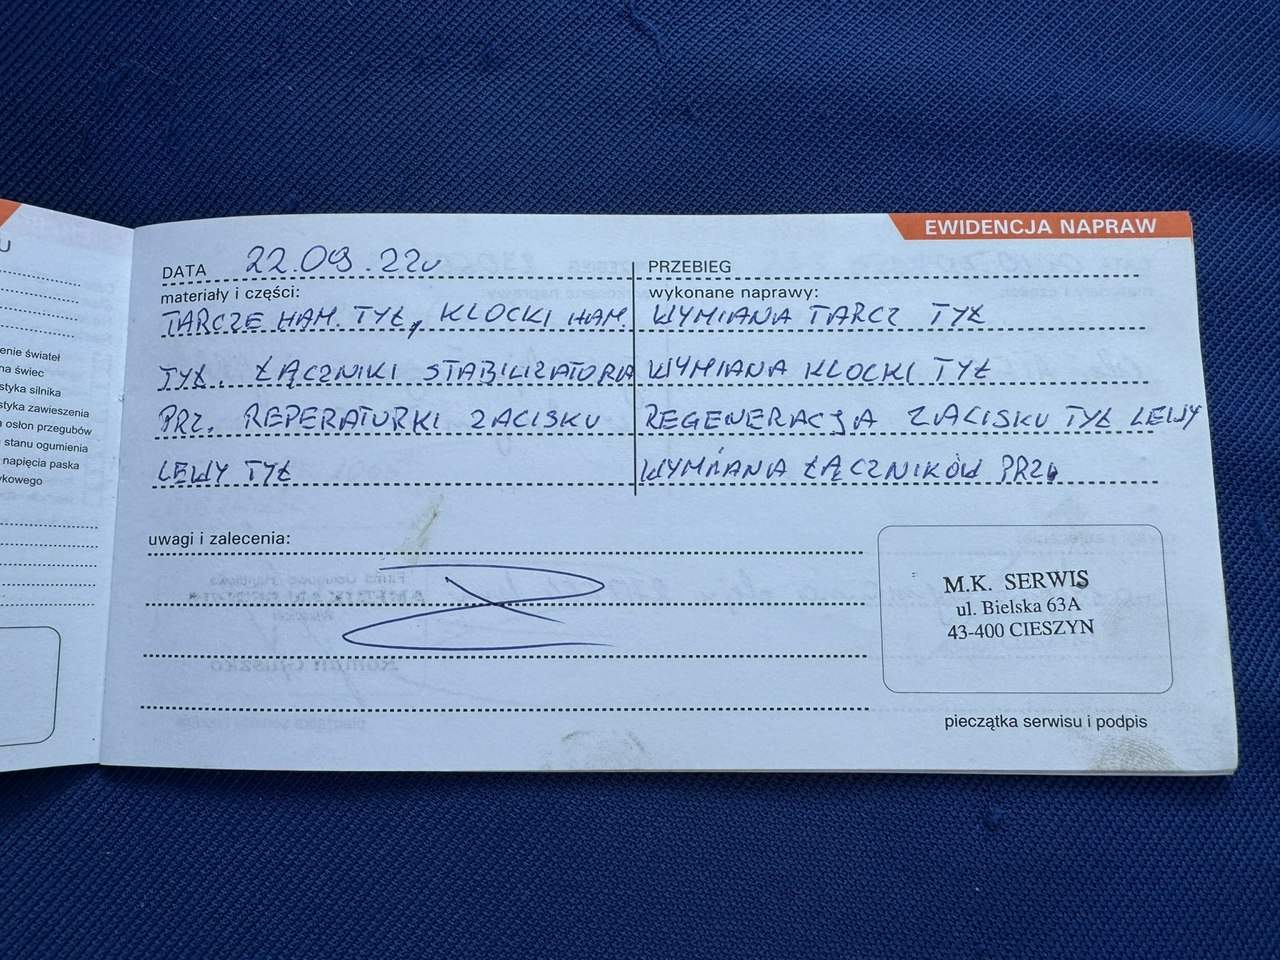 EWIDENCJA NAPRAW
DATA 22.09.22r
PRZEBIEG
materiały i części:
TARCZE HAM. TYŁ, KLOCKI HAM.
TYŁ. ŁĄCZNIKI STABILIZATORA
PRZ. REPERATURKI ZACISKU
LEWY TYŁ
wykonane naprawy:
WYMIANA TARCZ TYŁ
WYMIANA KLOCKI TYŁ
REGENERACJA ZACISKU TYŁ LEWY
WYMIANA ŁĄCZNIKÓW PRZ.
uwagi i zalecenia:
M.K. SERWIS
ul. Bielska 63A
43-400 CIESZYN
pieczątka serwisu i podpis
U
enie świateł
na świec
styka silnika
styka zawieszenia
osłon przegubów
stanu ogumienia
napięcia paska
ykowego